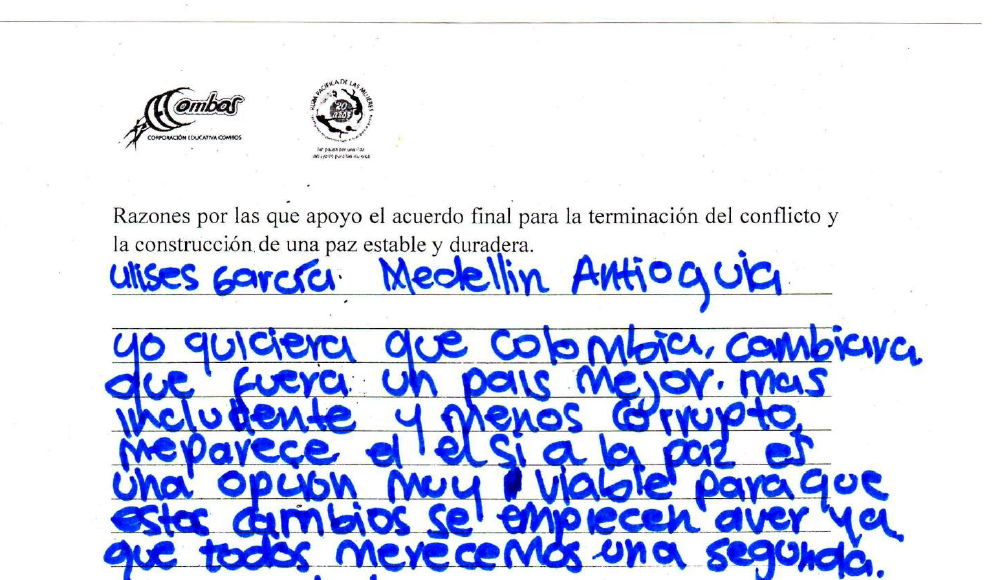 Combos
CORPORACIÓN EDUCATIVA COMBOS
RUTA PACIFICA DE LAS MUJERES
20 AÑOS
Razones por las que apoyo el acuerdo final para la terminación del conflicto y
la construcción de una paz estable y duradera.
Ulises García. Medellin Antioquia
yo quiciera que colombia, cambiara
que fuera un pais mejor. mas
incluyente y menos corrupto,
meparece el el si a la paz es
una opcion muy viable para que
estos cambios se empiecen aver ya
que todos merecemos una segunda.